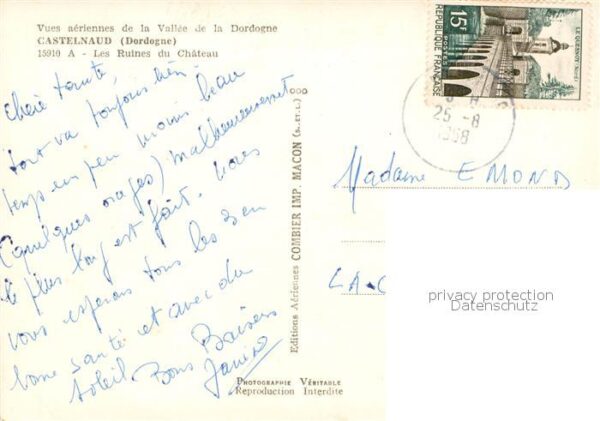 Vues aériennes de la Vallée de la Dordogne
CASTELNAUD (Dordogne)
15910 A - Les Ruines du Château
Chère tante,
tout va toujours bien.
temps un peu moins beau
(quelques orages) malheureusement
le plus long est fait. Nous
vous espérons tous les 3 en
bonne santé et avec du
soleil. Bons Baisers
Editions Aériennes COMBIER IMP. MACON (S.-ET-L.)
PHOTOGRAPHIE VÉRITABLE
Reproduction Interdite
15F
REPUBLIQUE FRANÇAISE
POSTES
LE QUESNOY (NORD)
25 -8
1958
Madame EMOND
privacy protection
Datenschutz